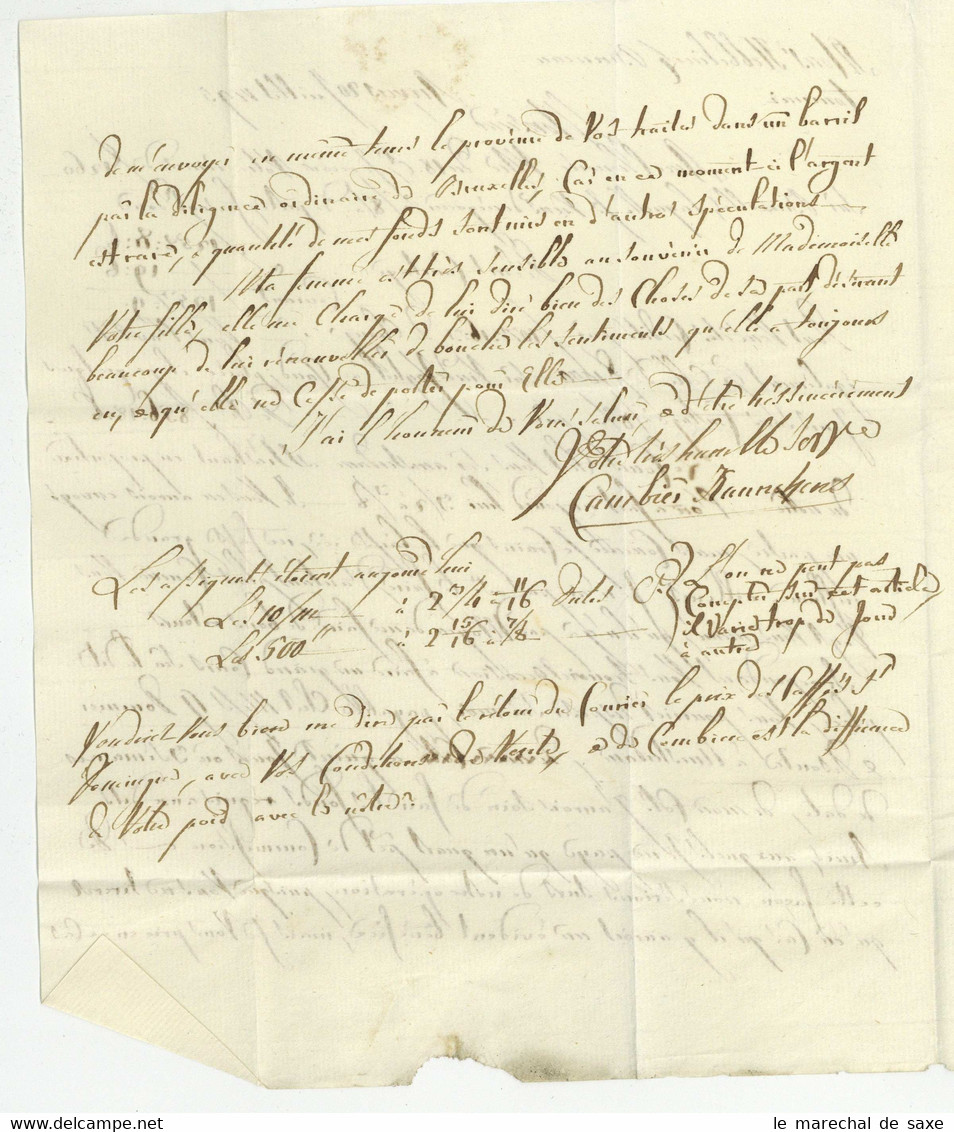 de m'envoyer en même tems le provenu de vos traites dans un barril
par la diligence ordinaire de Bruxelles, car en ce moment-ci l'argent
est rare, & quantité de mes fonds sont mis en d'autres spéculations
Ma femme est très sensible au souvenir de Mademoiselle
Votre fille, elle me charge de lui dire bien des choses de sa part, désirant
beaucoup de lui rénouveller de bouche les sentiments qu'elle a toujours
eu, & qu'elle ne cesse de porter pour Elle
J'ai l'honneur de vous saluer & d'etre très sincérement
Votre très humble
Cambier
Les assignats étoient aujourd'hui
Les 10/m à 2 3/4 à 11/16
Les 500" à 2 15/16 à 7/8
L'on ne peut pas
Compter sur cet article
il varie trop de jour
à autre
Voudriez Vous bien me dire par le rétour du Courier le prix des Caffés St
Domingue, avec vos Conditions de Vente, & de Combien est la différence
de Votre poid avec le nôtre
le marechal de saxe